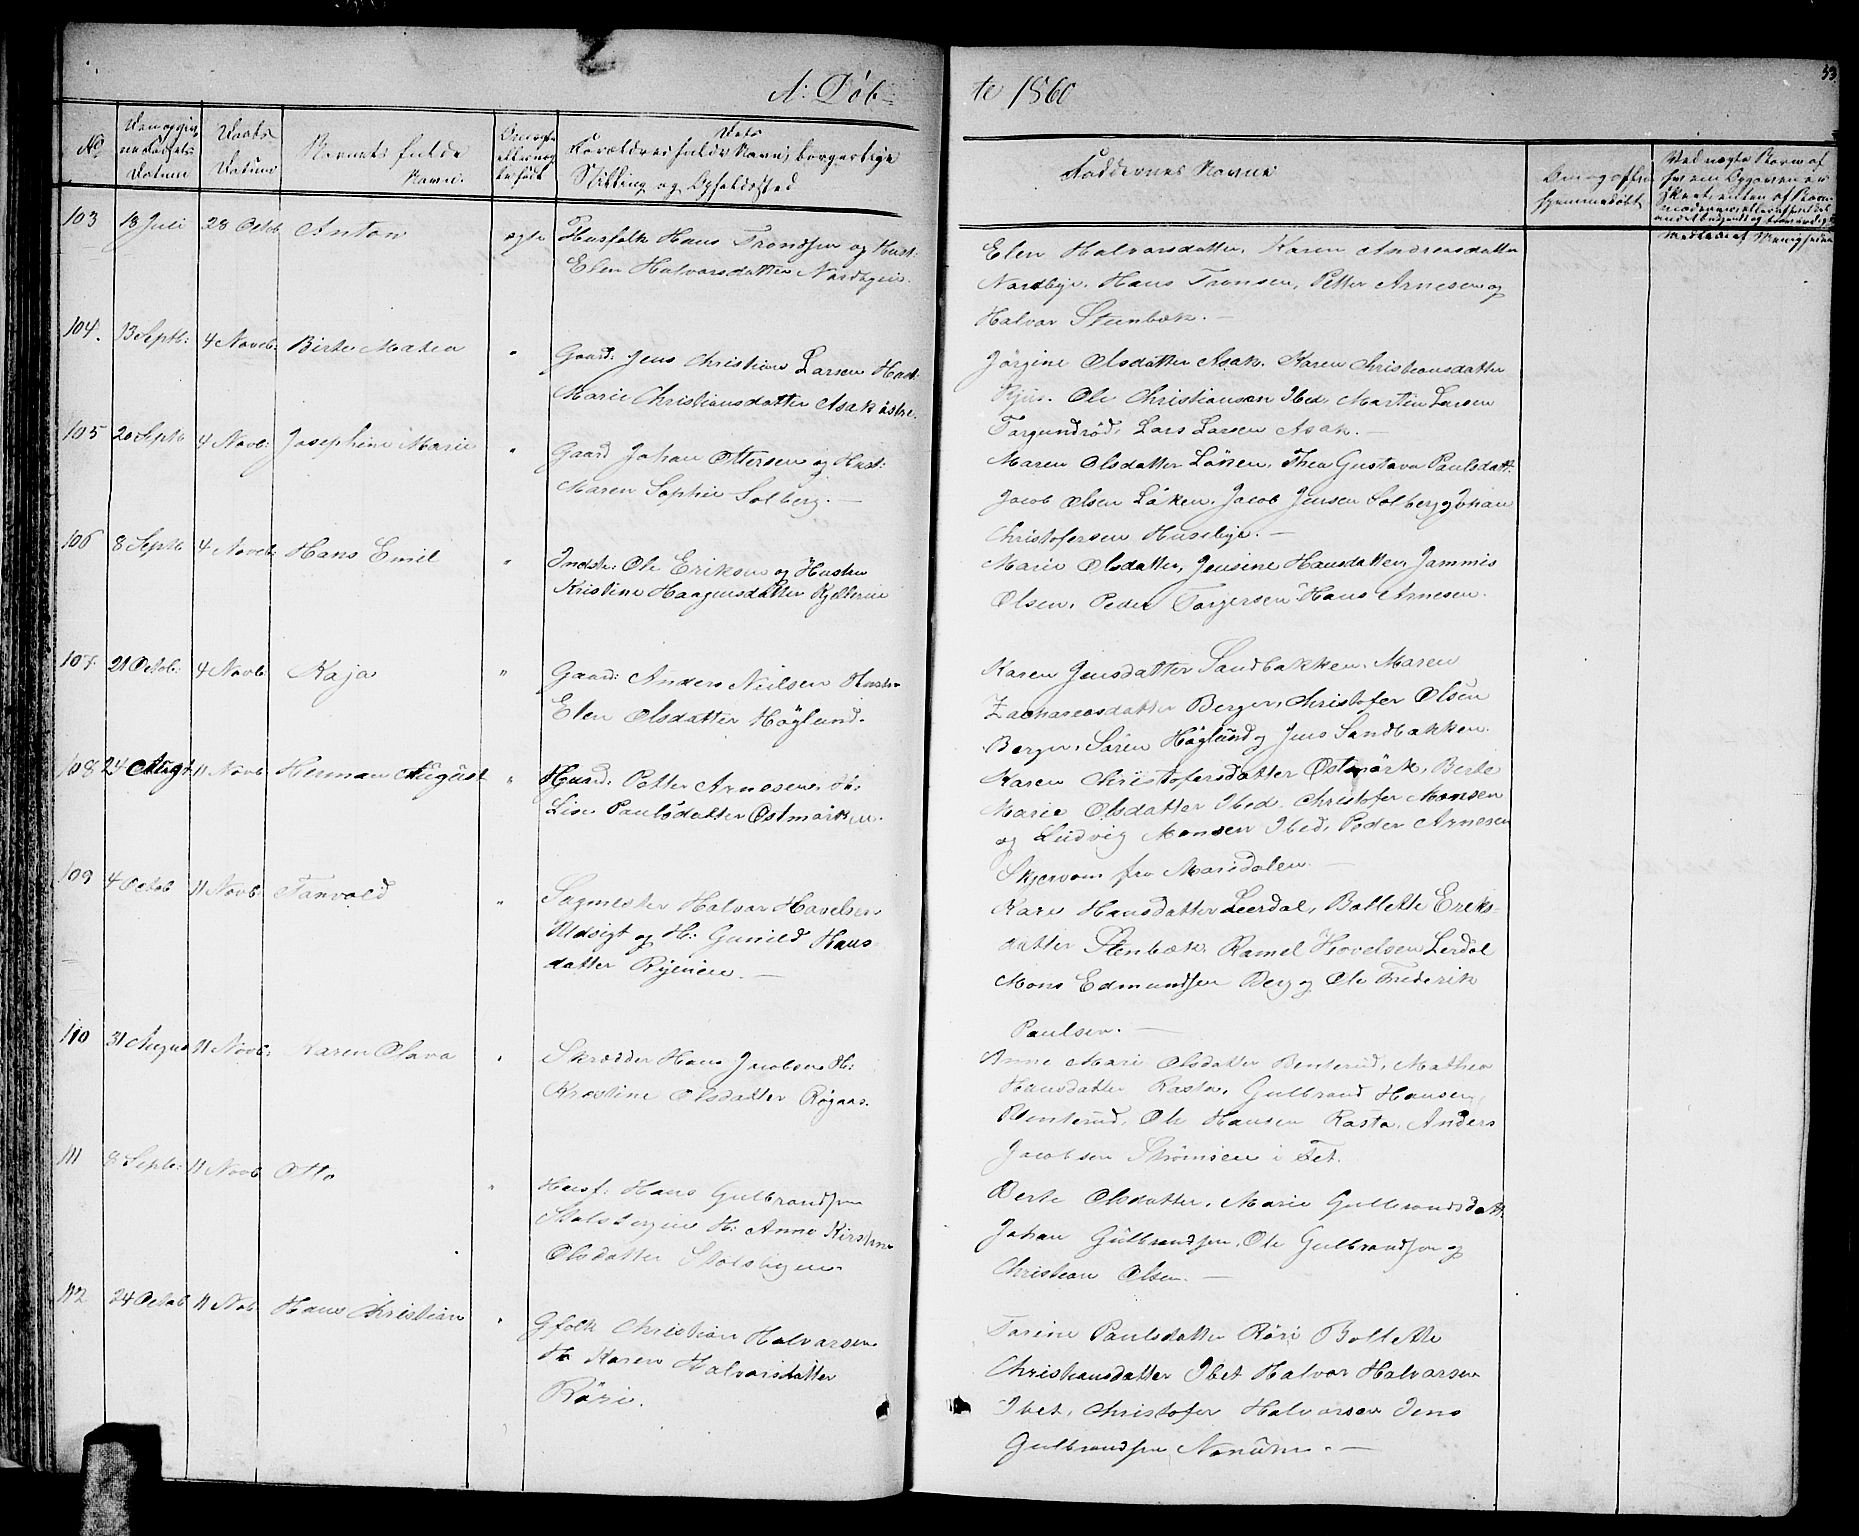 A: Døbte 1860
53
No
Datum
Daabs Datum
Barnets fulde Navn.
Forældres fulde Navn, borgerlige Stilling og Opholdssted
Faddernes Navne
103 13 Juli 28 Octob Anton ægte Husfolk Hans Trondsen og Hust:
Elen Halvarsdatter Nordbyeie.
Elen Halvarsdatter, Karen Andreasdatter
Nordbye. Hans Tronsen, Petter Arnesen og
Halvor Steenbæk. —
104. 13 Septb: 4 Noveb: Birte Matea " Gaard: Jens Christian Larsen Hust:
Marie Christiansdatter Asak østre.
Jörgine Olsdatter Asak. Karen Christiansdatter
Ole Christiansen Ibed. Martin Larsen
Torgundröd, Lars Larsen Asak. —
105 20 Septb 4 Novb: Josephine Marie " Gaard Johan Ottersen og Hust:
Maren Sophie Solberg. —
Maren Olsdatter Löken, Thea Gustava Paulsdatt.
Jacob Olsen Löken. Jacob Jensen Solberg og Johan
Christofersen Huseby. —
106 8 Septb 4 Noveb: Hans Emil " Indst: Ole Eriksen og Hustru
Kristine Haagensdatter Kjelleren
Marie Olsdatter, Jensine Hansdatter, Jammis
Olsen, Peder Torgersen Hans Arnesen.
107. 21 Octob: 4 Novb Kaja " Gaard: Anders Nielsen Hust:
Elen Olsdatter Höglund.
Karen Jensdatter Sandbakken. Maren
Zachariasdatter Berger, Christofer Olsen
Berger, Sören Höglund og Jens Sandbakken.
108 24 Augt 11 Novb Herman August " Husd: Petter Arnesen, H:
Lise Paulsdatter Ostmörken.
Karen Christofersdatter Ostmörk, Berte
Marie Olsdatter Ibed. Christofer Monsen
og Ludvig Monsen Ibed, Peder Arnesen
fra Maridalen —
109 4 Octob 11 Novb Tarvald " Sagmester Halvor Havelsen
Udsigt og H: Gunild Hans-
datter Ryeneie. —
Kari Hansdatter Leerdal, Bollette Eriks-
datter Stenbæk, Ramel Hovelsen Lerdal
Mons Edmundsen Berg og Ole Frederik
Paulsen. —
110 31 August 11 Novb: Karen Olava " Skrædder Hans Jacobsen H:
Kristine Olsdatter Rogaas.
Anne Mari Olsdatter Benterud, Mathea
Hansdatter Rasta, Gulbrand Hansen,
Benterud, Ole Hansen Rasta, Anders
Jacobsen Strömsen i Fet.
111 8 Septb: 11 Novb Otto " Husf: Hans Gulbrandsen
Stalsbergeie H: Anne Kirstine
Olsdatter Stalsbergeie
Berte Olsdatter, Marie Gulbrandsdatt.
Johan Gulbrandsen, Ole Gulbrandsen og
Christian Olsen. —
112 24 Octob 11 Nob: Hans Christian " Gfolk Christian Halvarsen
H: Karen Halvarsdatter
Röri.
Torine Paulsdatter Röri Bollette
Christiansdatter Ibet Halvor Halvarsen
Ibet, Christofer Halvorsen Jens
Gulbrandsen —